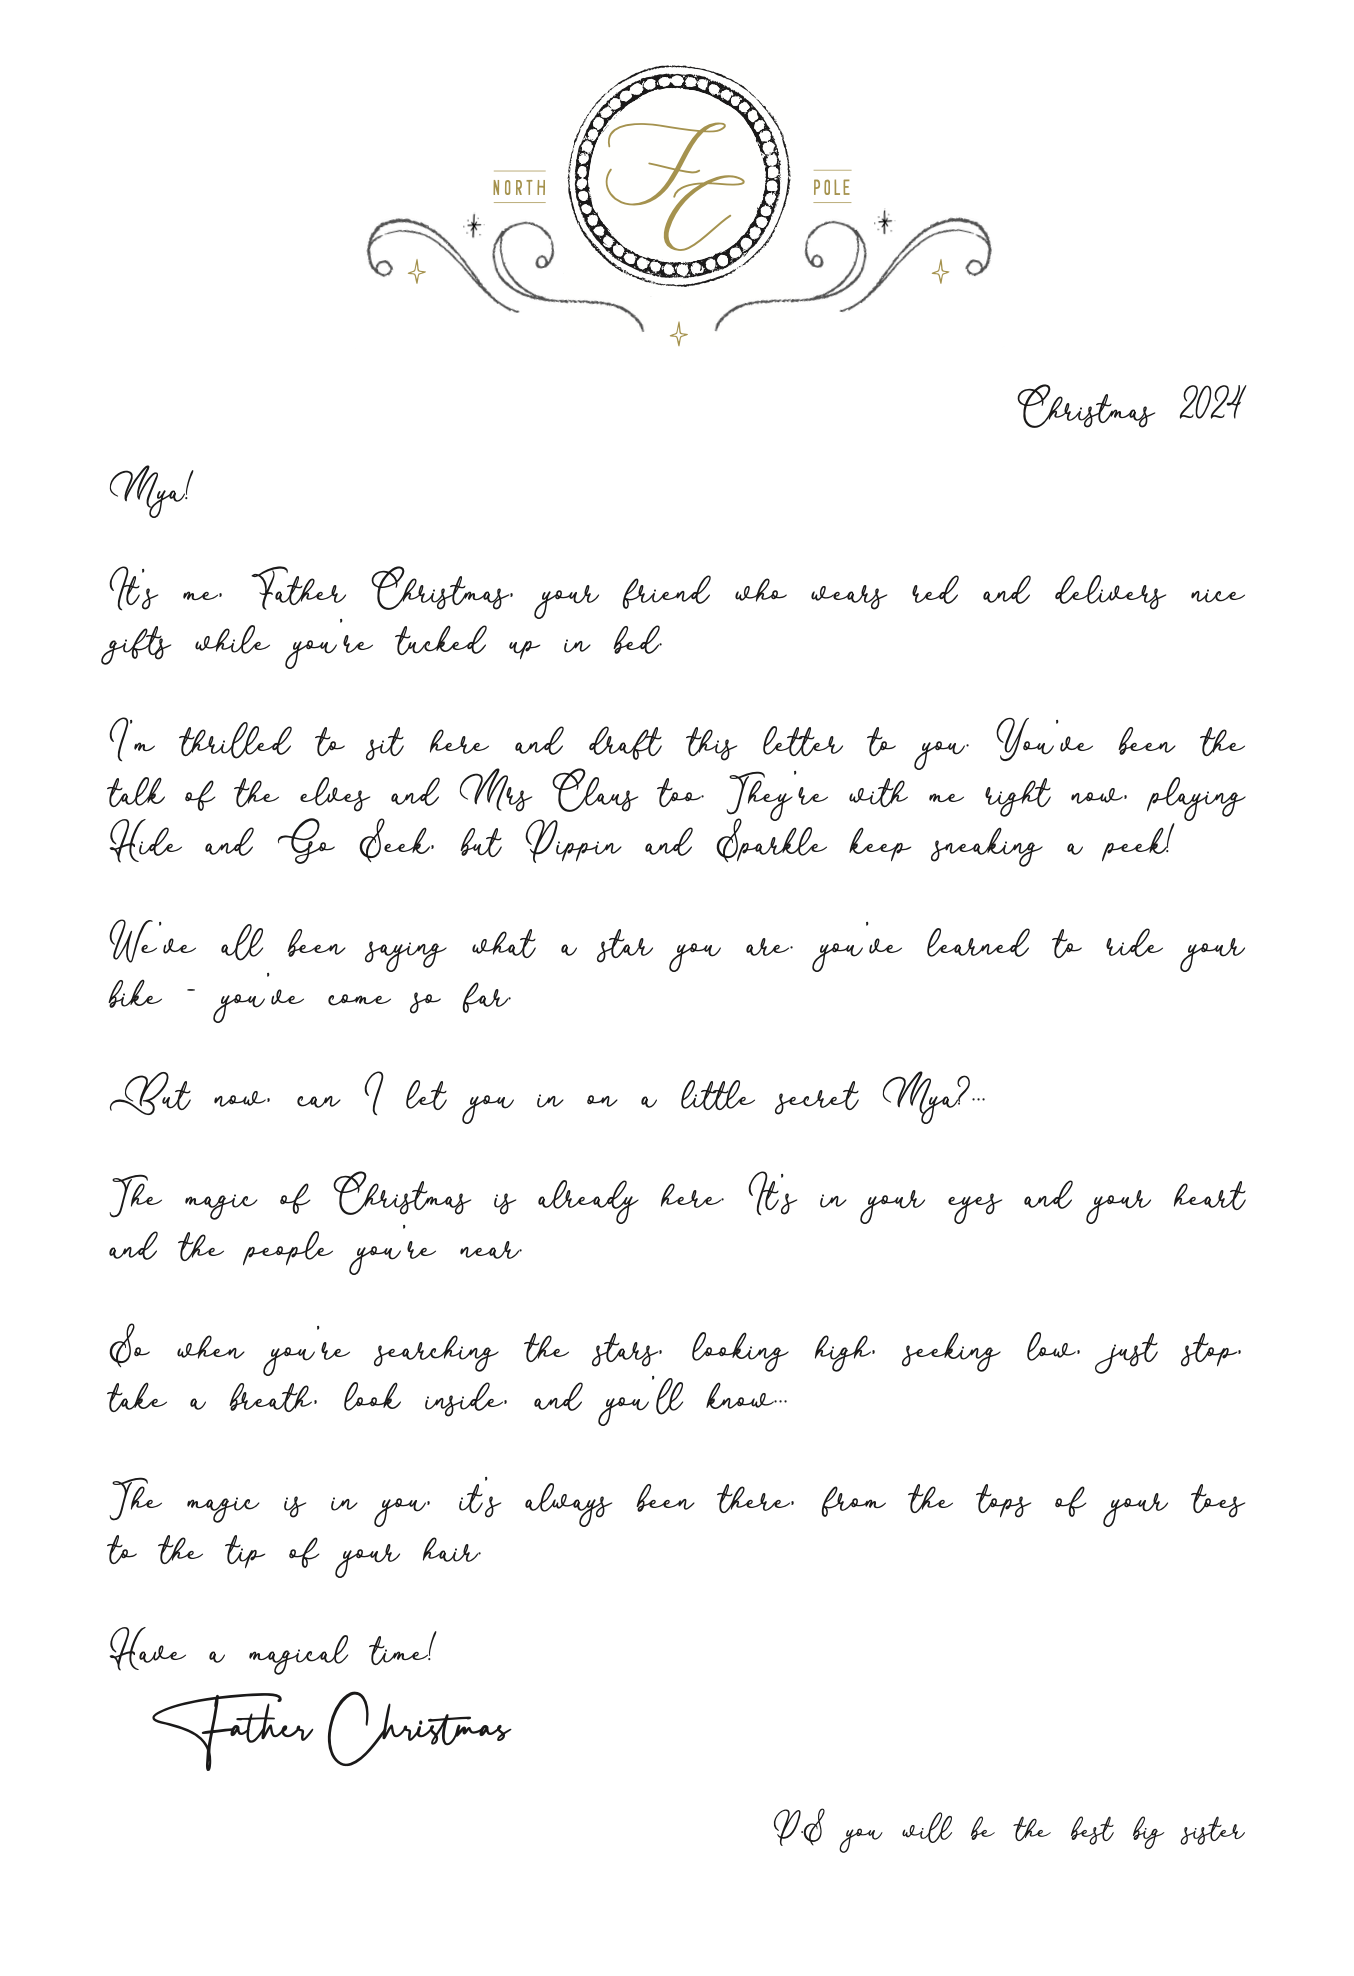 NORTH
FC
POLE
Christmas 2024
Mya!
It's me, Father Christmas, your friend who wears red and delivers nice
gifts while you're tucked up in bed.
I'm thrilled to sit here and draft this letter to you. You've been the
talk of the elves and Mrs Claus too. They're with me right now, playing
Hide and Go Seek, but Pippin and Sparkle keep sneaking a peek!
We've all been saying what a star you are. you've learned to ride your
bike - you've come so far.
But now, can I let you in on a little secret Mya?...
The magic of Christmas is already here. It's in your eyes and your heart
and the people you're near.
So when you're searching the stars, looking high, seeking low, just stop,
take a breath, look inside, and you'll know...
The magic is in you, it's always been there, from the tops of your toes
to the tip of your hair.
Have a magical time!
Father Christmas
P.S you will be the best big sister